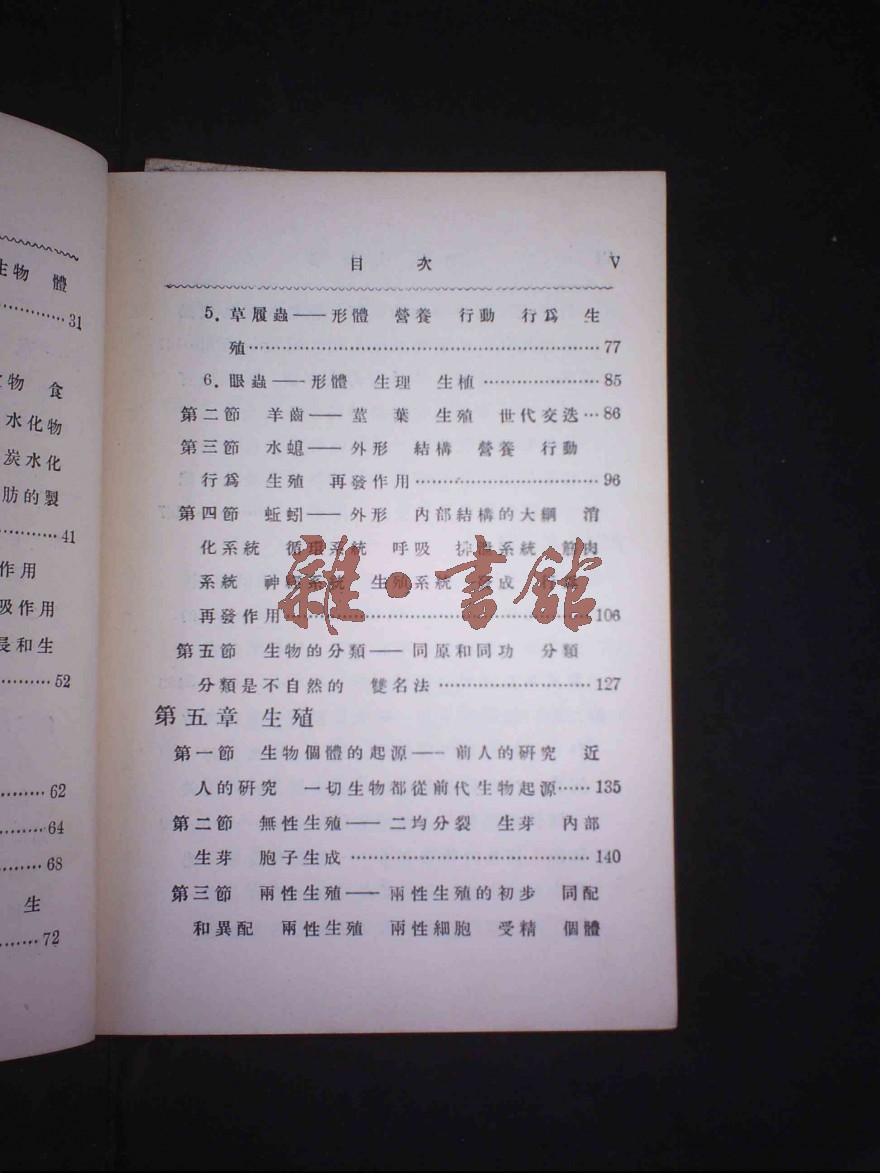 生物 體
31
物 食
水化物
炭水化
肪的製
41
作用
吸作用
長和生
52
62
64
68
生
72
目 次 V
5. 草履蟲——形體 營養 行動 行爲 生
殖……77
6. 眼蟲——形體 生理 生植……85
第二節 羊齒——莖 葉 生殖 世代交迭…86
第三節 水螅——外形 結構 營養 行動
行爲 生殖 再發作用……96
第四節 蚯蚓——外形 內部結構的大綱 消
化系統 循環系統 呼吸 排泄系統 筋肉
系統 神經系統 生殖系統
再發作用……106
第五節 生物的分類——同原和同功 分類
分類是不自然的 雙名法……127
第五章 生殖
第一節 生物個體的起源——前人的研究 近
人的研究 一切生物都從前代生物起源……135
第二節 無性生殖——二均分裂 生芽 內部
生芽 胞子生成……140
第三節 兩性生殖——兩性生殖的初步 同配
和異配 兩性生殖 兩性細胞 受精 個體
雜·書館